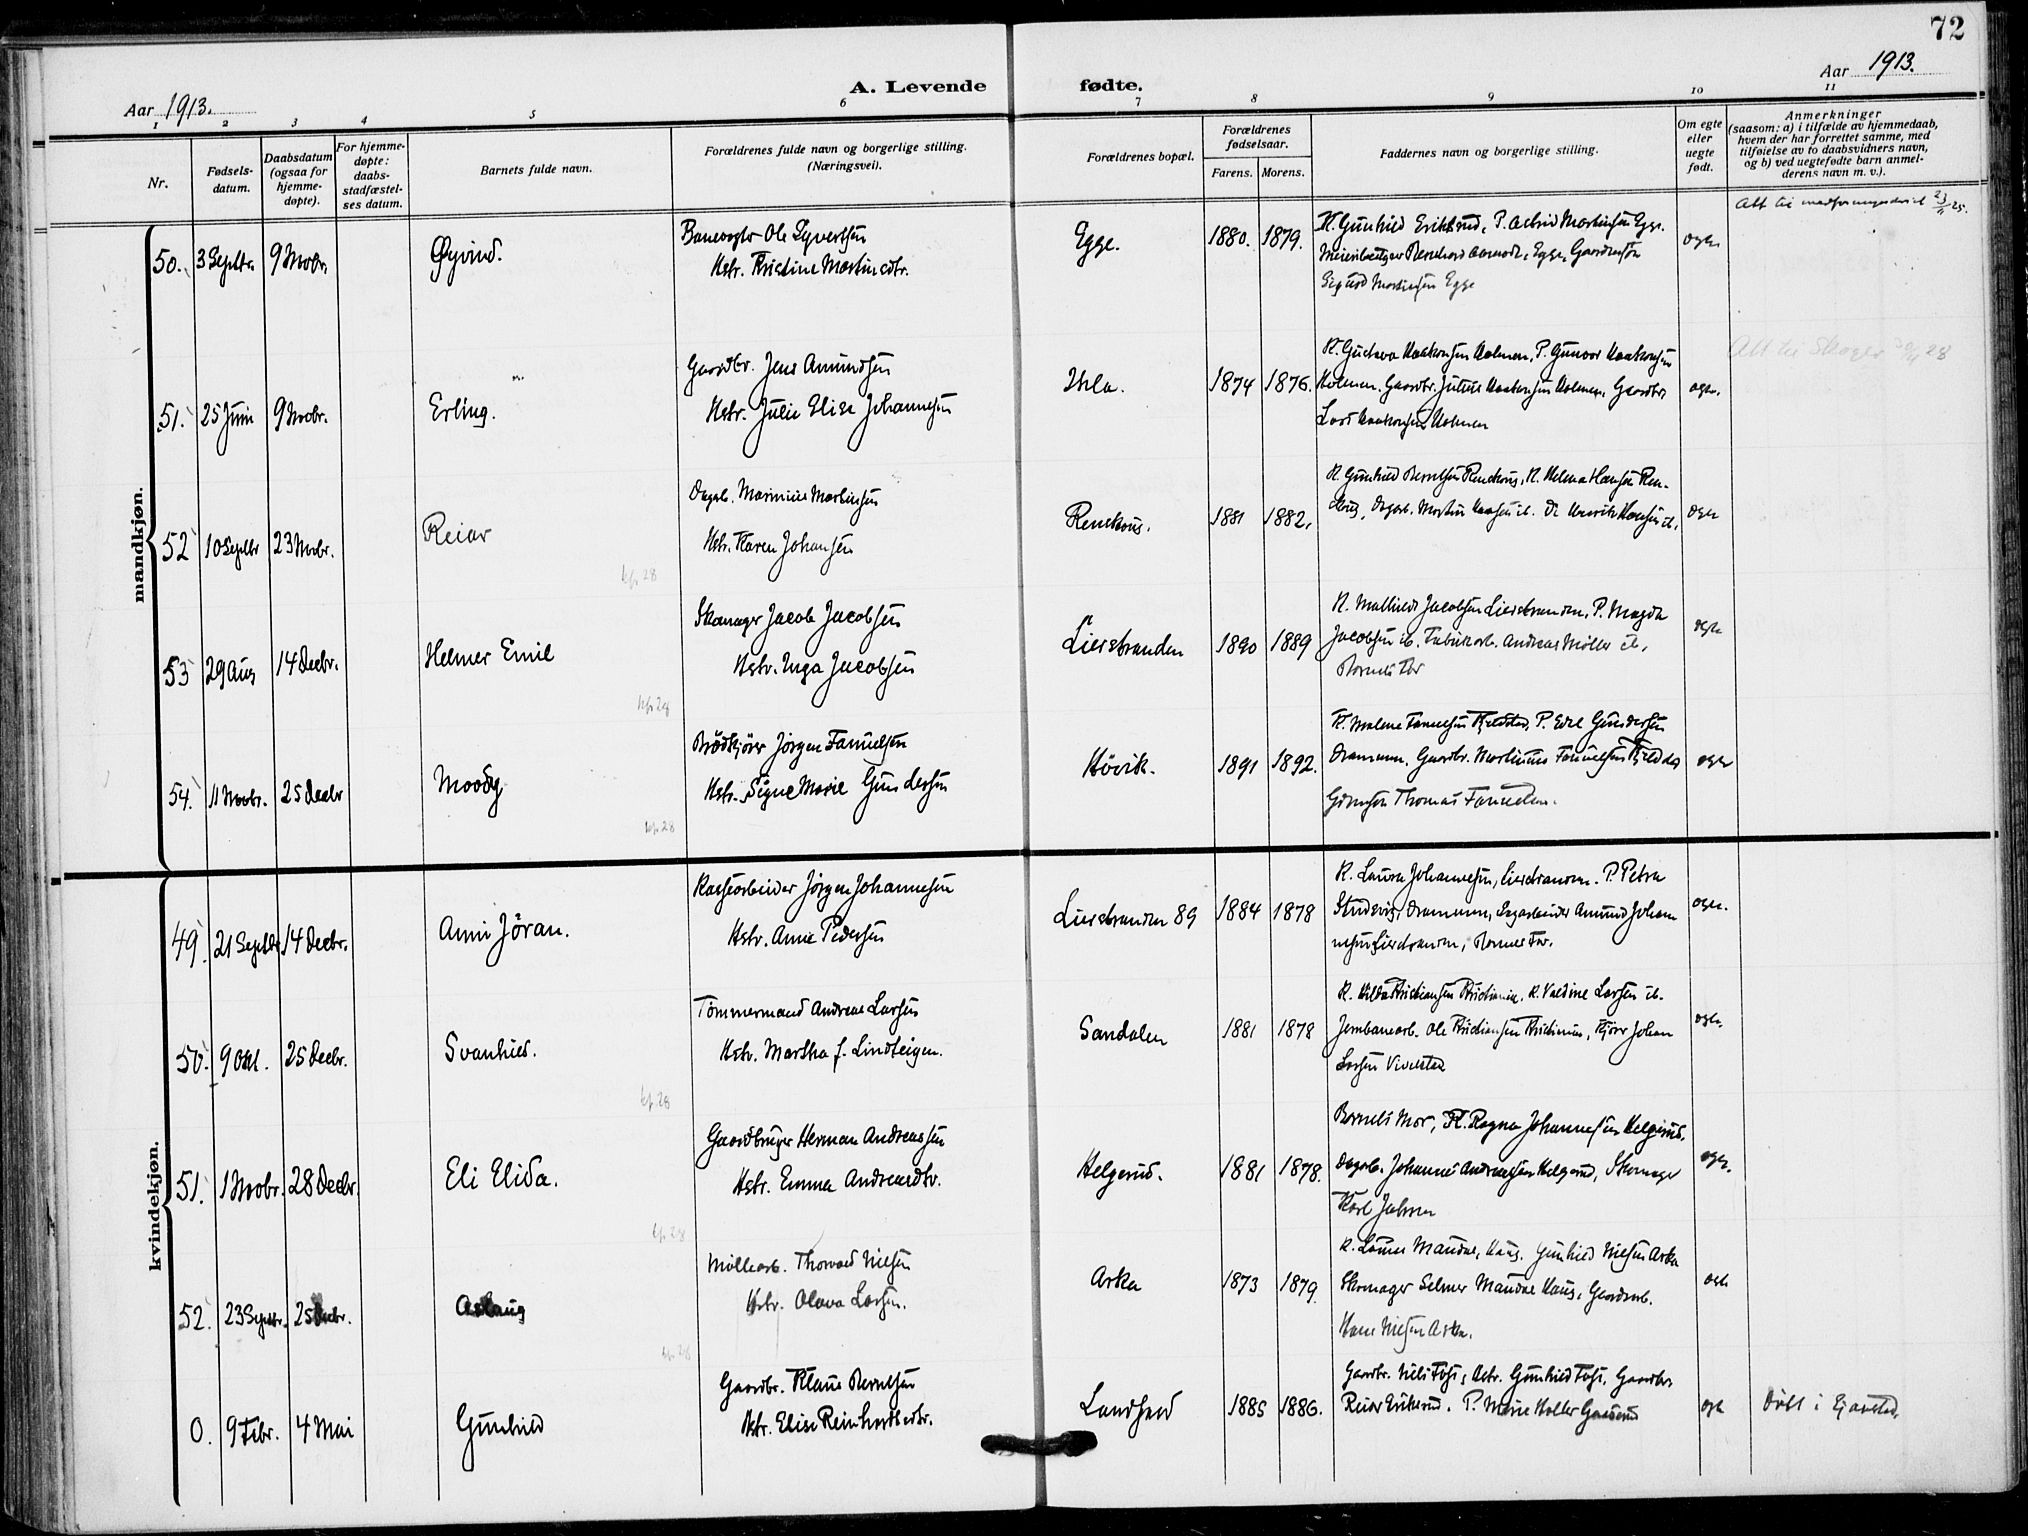 72
Aar 1913.
A. Levende fødte.
Aar 1913.
1 2 3 4 5 6 7 8 9 10 11
Nr.
Fødsels-
datum.
Daabsdatum
(ogsaa for
hjemme-
døpte).
For hjemme-
døpte:
daabs-
stadfæstel-
ses datum.
Barnets fulde navn.
Forældrenes fulde navn og borgerlige stilling.
(Næringsvei).
Forældrenes bopæl.
Forældrenes
fødselsaar.
Farens. Morens.
Faddernes navn og borgerlige stilling.
Om egte
eller
uegte
født.
Anmerkninger
(saasom: a) i tilfælde av hjemmedaab,
hvem der har forrettet samme, med
tilføielse av to daabsvidners navn,
og b) ved uegtefødte barn anmel-
derens navn m. v.).
mandkjøn.
50. 3 Septbr. 9 Novbr. Øyvind.
Banevogter Ole Syvertsen
Hstr. Kristine Martinsdtr.
Egge. 1880. 1879.
K. Gunhild Eriksrud, P. Astrid Martinsen Egge.
Egge, Gaardm.søn
Sigurd Martinsen Egge
egte
51. 25 Juni 9 Novbr. Erling.
Gaardbr. Jens Amundsen
Hstr. Julie Elise Johannesen
1874 1876.
K. Gustava Haakonsen Holmen, P. Gunvor Haakonsen
Holmen. Gaardbr. Julius Haakonsen Holmen, Gaardbr.
Lars Haakonsen Holmen
egte.
Att til Skoger 28
52 10 Septbr 23 Novbr. Reiar
Dagarb. Marinius Martinsen
Hstr. Karen Johansen
Renskoug. 1881 1882.
K. Gunhild Berntsen Renskoug, K. Helma Hansen Ren-
skoug, Dagarb. Martin Hansen ib. Do Henrik Hansen ib.
egte
kp. 28
53 29 Aug 14 Decbr. Helmer Emil
Skomager Jacob Jacobsen
Hstr. Inga Jacobsen
Lierstranden 1890 1889
K. Mathilde Jacobsen Lierstranden, P. Magda
Jacobsen ib. Fabrikarb. Andreas Møller ib.
Barnets Far
egte
kp. 28
54. 11 Novbr. 25 Decbr Moody
Brødkjører Jørgen Fanuelsen
Hstr. Signe Marie Gundersen
Høvik. 1891 1892.
K. Malene Fanuelsen Kjeldstad, P. Edel Gundersen
Drammen. Gaardbr. Martinius Fanuelsen Kjeldstad
Thomas Fanuelsen.
egte
kp. 28
kvindekjøn.
49. 21 Septbr. 14 Decbr. Anni Jöran.
Jørgen Johannesen
Hstr. Anne Pedersen
Lierstranden 89 1884 1878
K. Laura Johannesen, Lierstranden. P. Petra
Drammen, Dagarbeider Amund Johan-
nesen Lierstranden, Barnets Far.
egte.
50. 9 Okt. 25 Decbr. Svanhild.
Tømmermand Andreas Larsen
Hstr. Martha f. Lindteigen.
Sandaker 1881 1878
K. Hilda Kristiansen Kristiania, K. Valdine Larsen ib.
Jernbanearb. Ole Kristiansen Kristiania, Kjører Johan
Larsen Vivelstad
egte.
kp. 28
51. 1 Novbr. 28 Decbr. Eli Elida.
Gaardbruger Herman Andreassen
Hstr. Emma Andreasdtr.
Helgerud. 1881 1878.
Barnets Mor, K. Ragna Johannesen Helgerud,
Dagarb. Johannes Andreassen Helgerud, Skomager
Karl Jahren
egte.
kp. 28
52. 23 Septbr. 25 Decbr. Aslaug
Møllearb. Thorvald Nilsen
Hstr. Olava Larsen.
Aska 1873 1879.
Gunhild Nilsen Aska
Skomager Selmer Haug, Gaardarb.
Hans Nilsen Aska.
egte
kp. 28
0. 9 Febr. 4 Mai Gunhild
Gaardbr. Klaus Berntsen
Hstr. Elise Reinhartsdtr.
Landfald 1885 1886.
Gaardbr. Nils Foss, Hstr. Gunhild Foss, Gaardbr.
Reier Eriksrud. P. Marie Holter
egte
Døbt i Sjaastad.